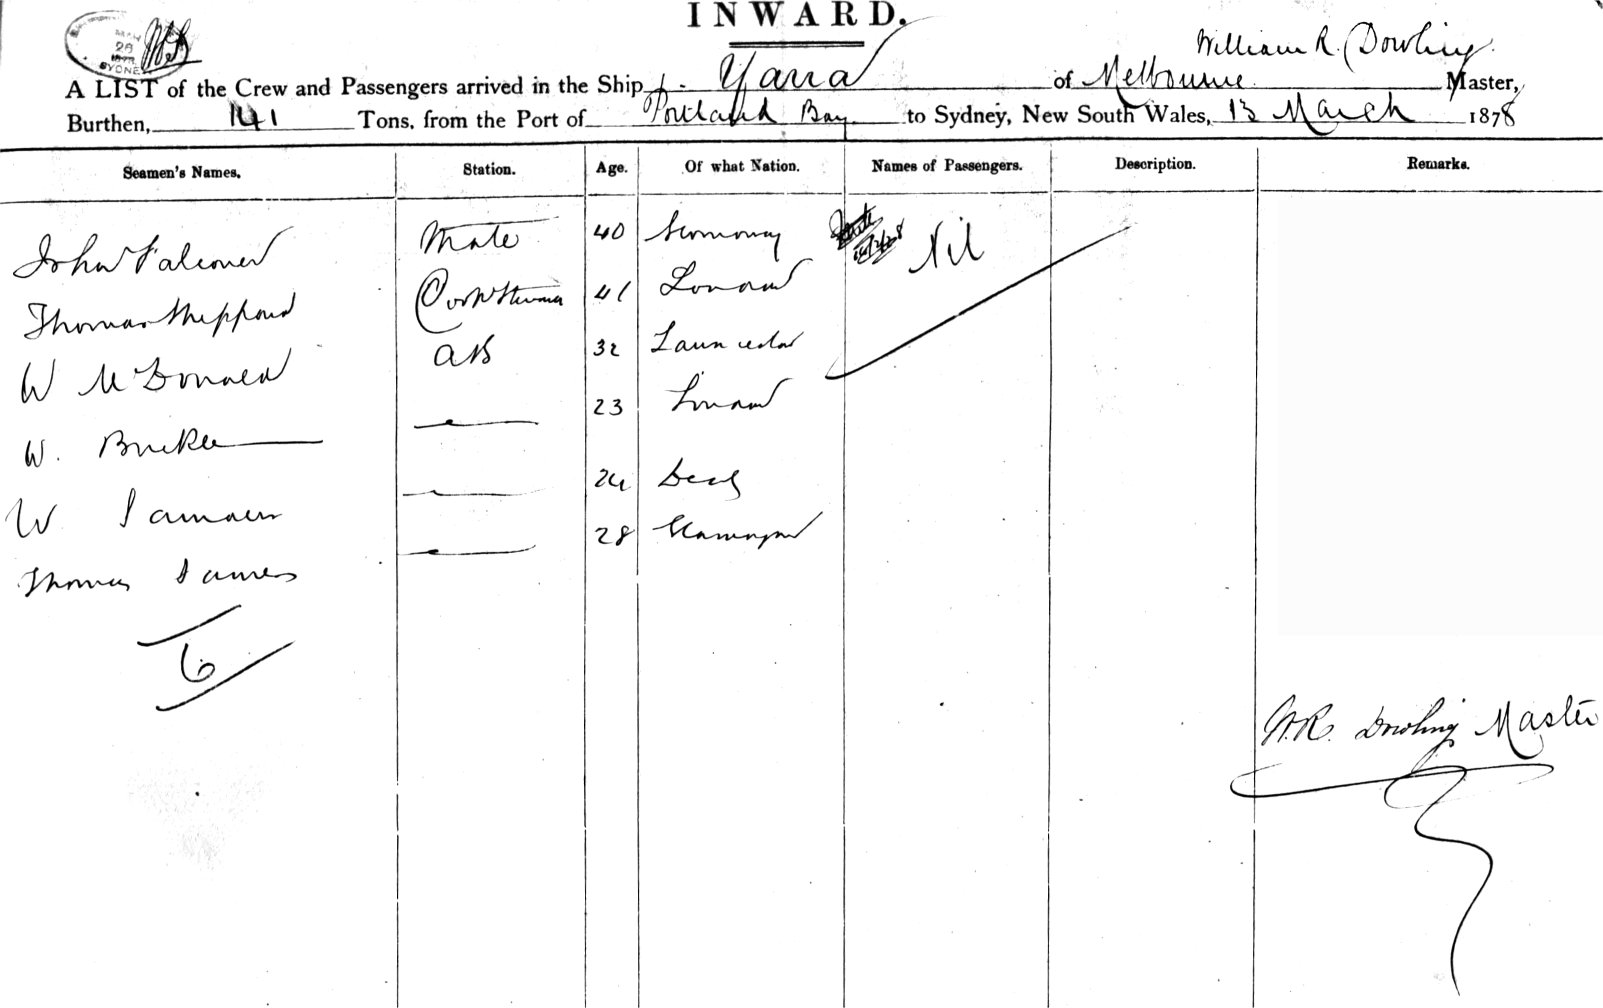 INWARD.
William R. Dowling
A LIST of the Crew and Passengers arrived in the Ship Yarra of Melbourne Master,
Burthen, 141 Tons, from the Port of Portland Bay to Sydney, New South Wales, 13 March 1878
Seamen's Names. Station. Age. Of what Nation. Names of Passengers. Description. Remarks.
John Falconer Mate 40 Stornoway Nil
Thomas Sheppard 41 London
W McDonald AB 32
W. 23 London
W 24
Thomas James 28
6
W.R. Dowling Master
SYDNEY